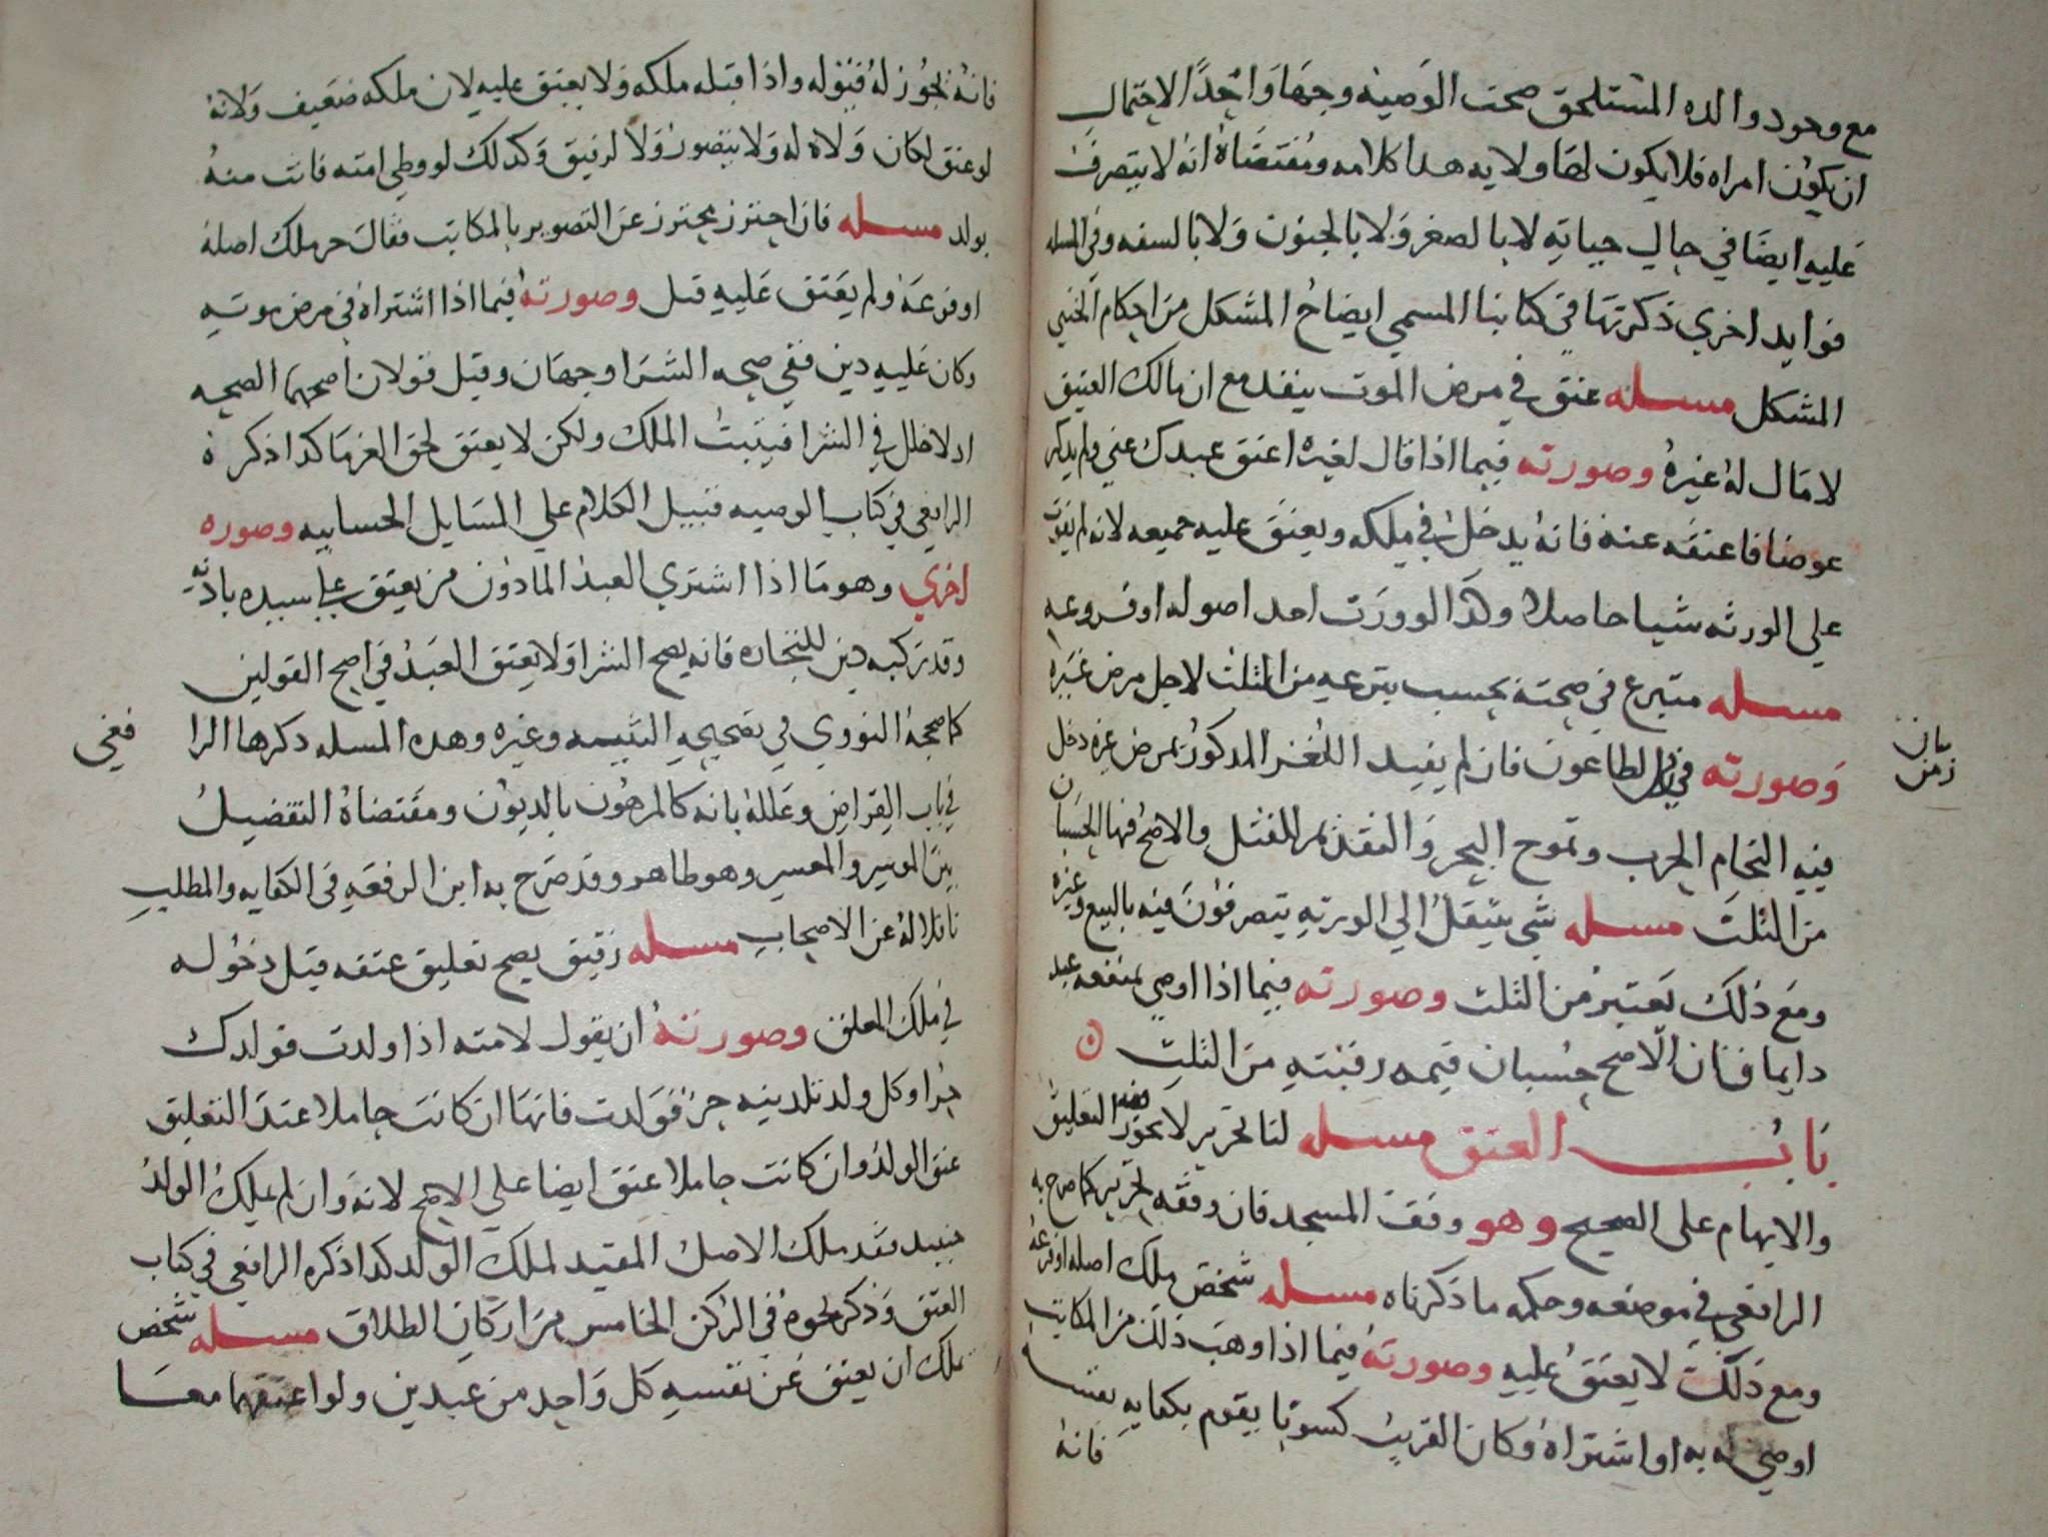 مع وجود والده المستلحق صحت الوصيه وجها واحدا لاحتمال
ان يكون امراه فلا يكون لها ولايه هدا كلامه ومقتضاه انه لا يتصرف
عليه ايضا في حال حياته لا بالصغر ولا بالجنون ولا بالسفه وفي المسله
فوايد اخري ذكرتها في كتابنا المسمي ايضاح المشكل من احكام الخنثي
المشكل مسله عتق في مرض الموت ينفد مع ان مالك العتيق
لا مال له غيره وصورته فيما اذا قال لغيره اعتق عبدك عني ولم يدكر
عوضا فاعتقه عنه فانه يدخل في ملكه ويعتق عليه جميعه لانه لم يفوت
علي الورثه شيا حاصلا وكدا لو ورث احد اصوله او فروعه
مسله متبرع في صحته يحسب تبرعه من الثلث لاجل مرض غيره
وصورته في الطاعون فان لم يقيد اللغز المدكور بمرض غيره دخل
زمان
فيه التحام الحرب وتموج البحر والتقديم للقتل والاصح فيها الحسبان
من الثلث مسله شي ينتقل الي الورثه يتصرفون فيه بالبيع وغيره
ومع ذلك يعتبر من الثلث وصورته فيما اذا اوصي بمنفعه عبد
دايما فان الاصح حسبان قيمه رقبته من الثلث
باب العتق مسله لنا تحرير لا يجوز فيه التعليق
والابهام على الصحيح وهو وقف المسجد فان وقفه تحرير كما صرح به
الرافعي في موضعه وحكمه ما ذكرناه مسله شخص ملك اصله او فرعه
ومع ذلك لا يعتق عليه وصورته فيما اذا وهب ذلك من المكاتب
او وصي له به او اشتراه وكان القريب كسوبا يقوم بكفايه نفسه
فانه
فانه يجوز له قبوله واذا قبله ملكه ولا يعتق عليه لان ملكه ضعيف ولانه
لو عتق لكان ولاه له ولا يتصور ولا لرقيق وكدلك لو وطي امته فاتت منه
بولد مسله فان احترز محترز عن التصوير بالمكاتب فقال حر ملك اصله
او فرعه ولم يعتق عليه قبل وصورته فيما اذا اشتراه في مرض موته
وكان عليه دين ففي صحه الشرا وجهان وقيل قولان اصحهما الصحه
اد لا خلل في الشرا فيثبت الملك ولكن لا يعتق لحق الغرما كدا ذكره
الرافعي في كتاب الوصيه قبيل الكلام علي المسايل الحسابيه وصوره
اخري وهو ما اذا اشتري العبد المادون من يعتق علي سيده باذنه
وقد ركبه دين للتجاره فانه يصح الشرا ولا يعتق العبد في اصح القولين
كما صححه النووي في تصحيح التنبيه وغيره وهده المسله دكرها الرا
فعي
في باب القراض وعلله بانه كالمرهون بالديون ومقتضاه التفصيل
بين الموسر والمعسر وهو ظاهر وقد صرح به ابن الرفعه في الكفايه والمطلب
ناقلا له عن الاصحاب مسله رقيق يصح تعليق عتقه قبل دخوله
في ملك المعلق وصورته ان يقول لامته اذا ولدت فولدك
حرا وكل ولد تلدينه حر فولدت فانها ان كانت حاملا عند التعليق
عتق الولد وان كانت حاملا عتق ايضا علي الاصح لانه وان لم يملك الولد
حينيد فقد ملك الاصل المفيد لملك الولد كدا ذكره الرافعي في كتاب
العتق وذكر نحوه في الركن الخامس من اركان الطلاق مسله شخص
يملك ان يعتق عن نفسه كل واحد من عبدين ولو اعتقهما معا